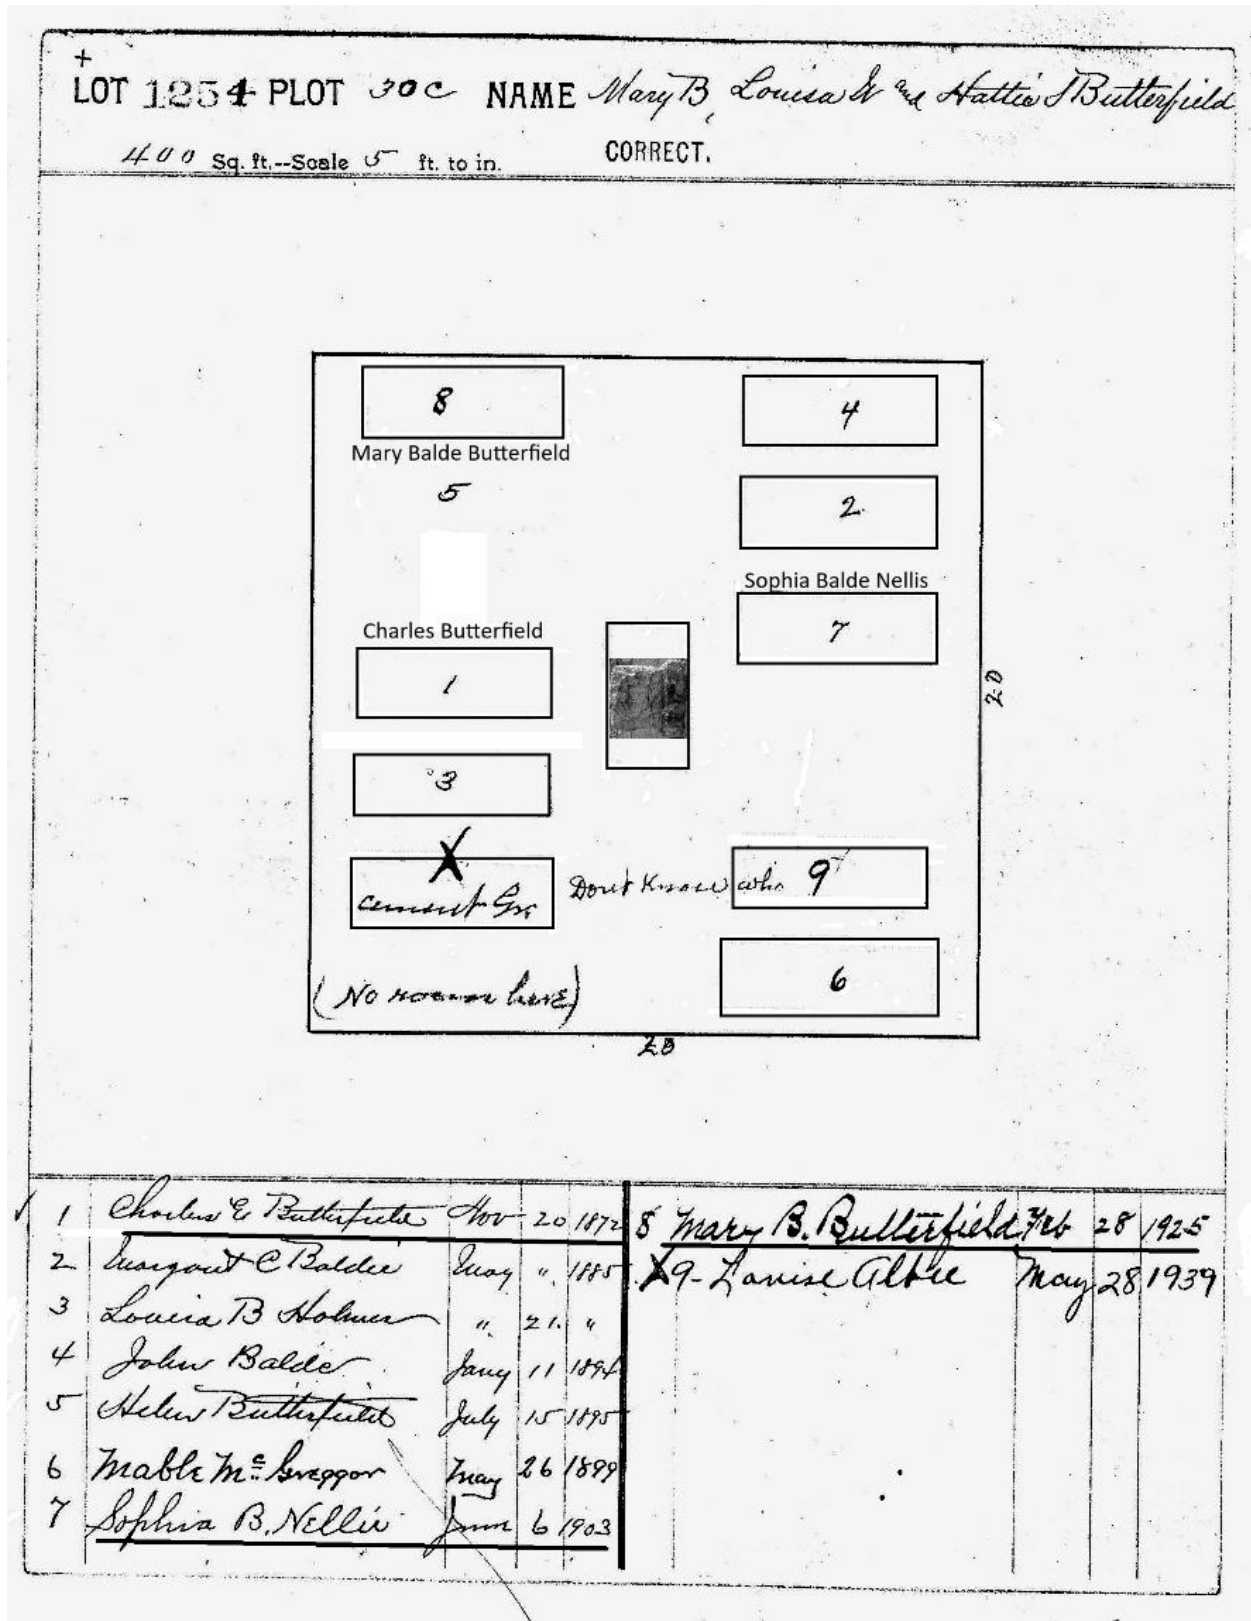 +
LOT 1254 PLOT 30C NAME Mary B, Louisa W and Hattie S Butterfield
400 Sq. ft.--Scale 5 ft. to in. CORRECT.
8 4
Mary Balde Butterfield
5 2
Sophia Balde Nellis
Charles Butterfield 7
1
20
3
X
cement Gr Don't Know who 9
(No room here) 6
20
1 Charles E Butterfield Nov 20 1872
2 Margaret C Baldie May " 1885
3 Louisa B Holmes " 21 "
4 John Balde Jany 11 1894
5 Helen Butterfield July 15 1895
6 Mable Mc Greggor May 26 1899
7 Sophia B. Nellis June 6 1903
8 Mary B. Butterfield Feb 28 1925
X 9- Louise Albee May 28 1939